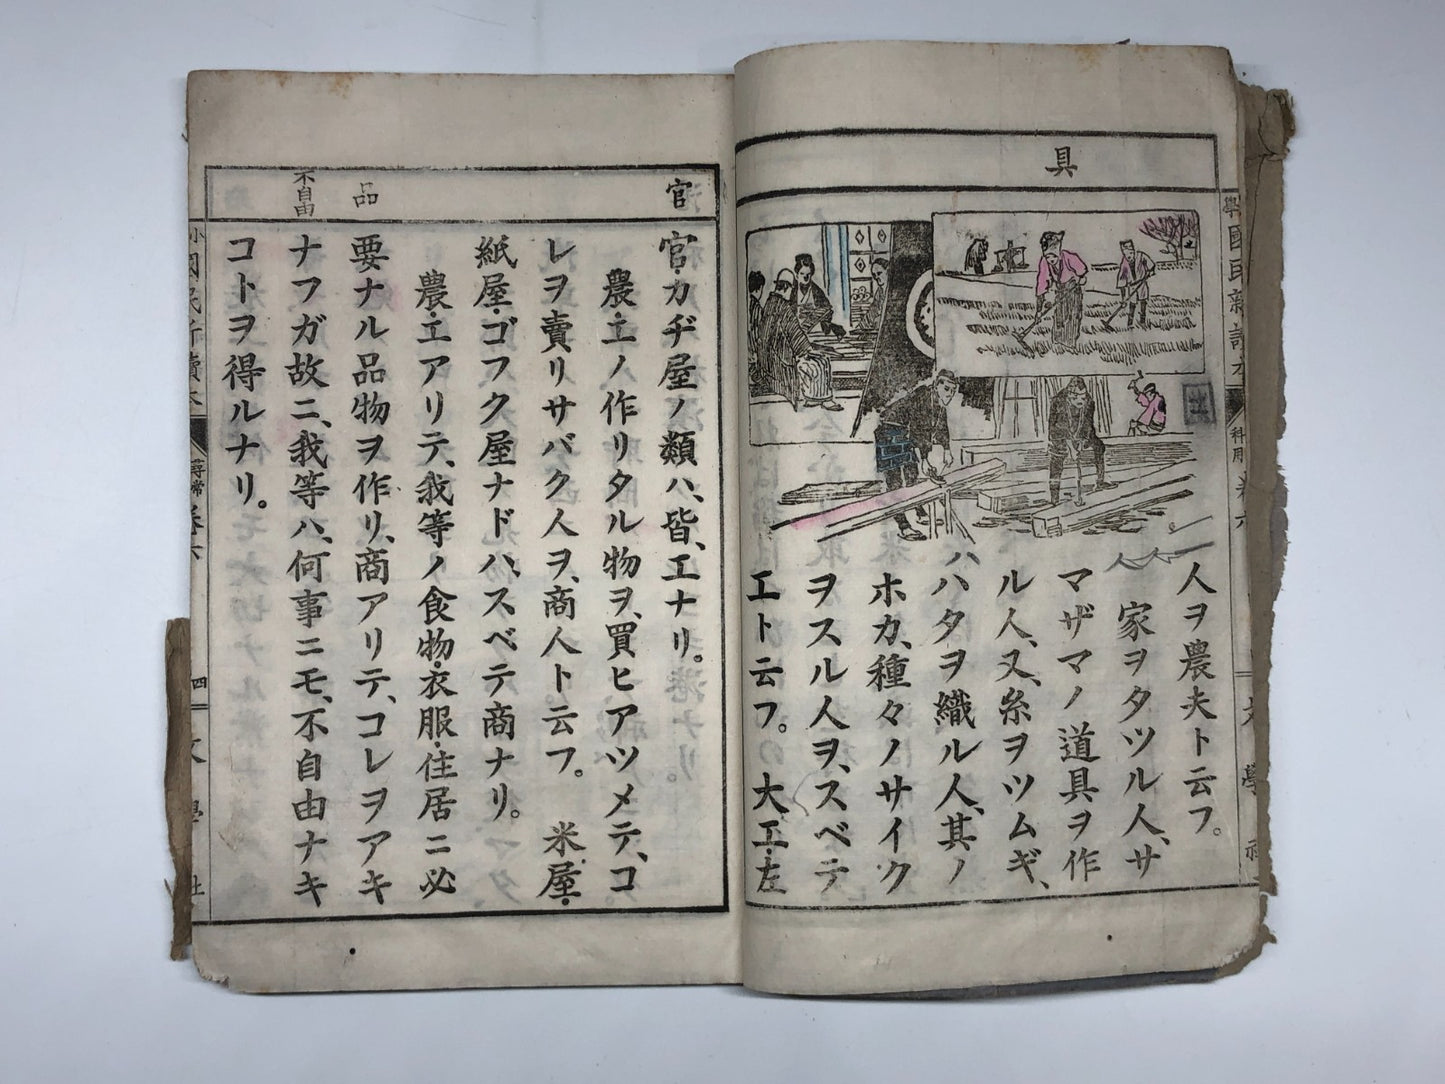 具
人ヲ農夫ト云フ。
家ヲタツル人、サ
マザマノ道具ヲ作
ル人、又、糸ヲツムギ、
ハタヲ織ル人、其ノ
ホカ、種々ノサイク
ヲスル人ヲ、スベテ
工ト云フ。大工・左
官
品
不自由
官・カヂ屋ノ類ハ、皆、工ナリ。
農・工ノ作リタル物ヲ、買ヒアツメテ、コ
レヲ賣リサバク人ヲ、商人ト云フ。米屋・
紙屋・ゴフク屋ナドハ、スベテ商ナリ。
農・工アリテ、我等ノ食物・衣服・住居ニ必
要ナル品物ヲ作リ、商アリテ、コレヲアキ
ナフガ故ニ、我等ハ、何事ニモ、不自由ナキ
コトヲ得ルナリ。
四